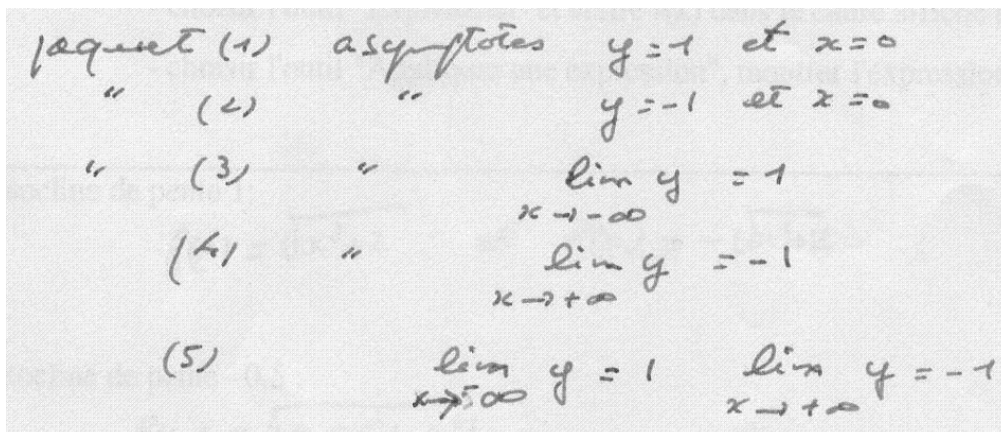 paquet (1) asymptotes y = 1 et x = 0
" (2) " y = -1 et x = 0
" (3) " lim y = 1
x → -∞
(4) " lim y = -1
x → +∞
(5) lim y = 1 lim y = -1
x → -∞ x → +∞